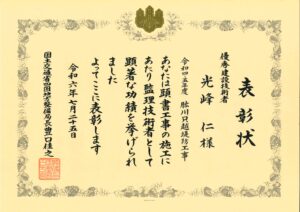 表彰状
優秀建設技術者
光峰 仁 様
令和四-五年度 肱川只越堤防工事
あなたは頭書工事の施工に
あたり監理技術者として
顕著な功績を挙げられ
ました
よってここに表彰します
令和六年七月二十五日
国土交通省四国地方整備局長 豊口佳之